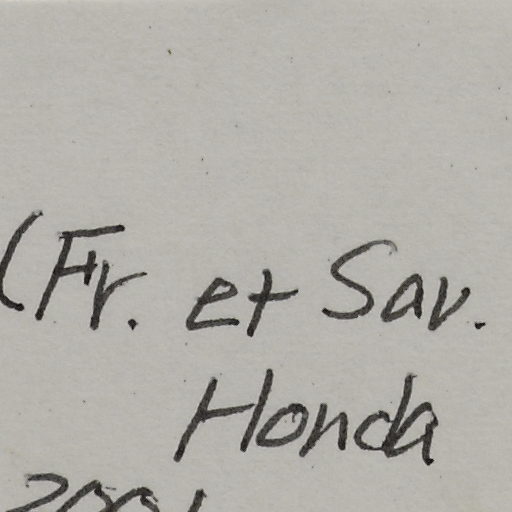 (Fr. et Sav.
Honda